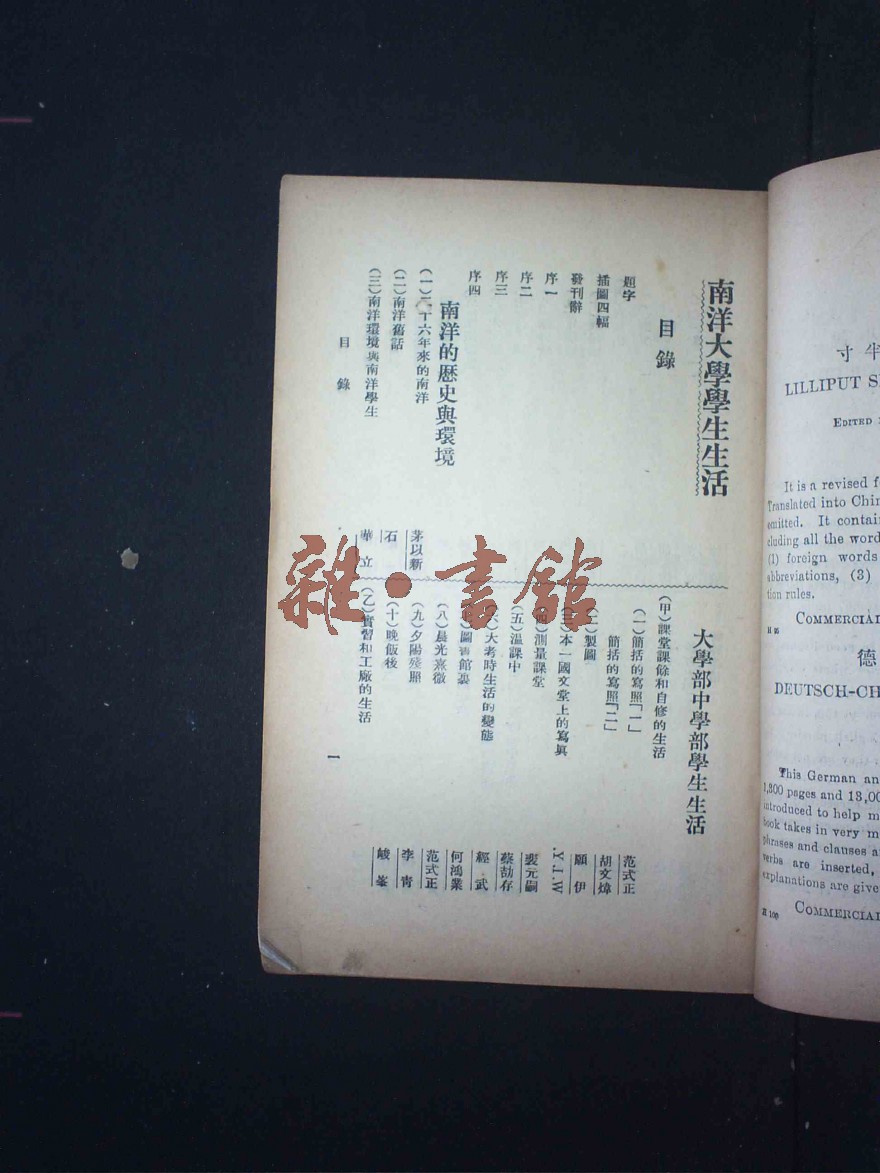 南洋大學學生生活
目錄
題字
插圖四幅
發刊辭
序一
序二
序三
序四
南洋的歷史與環境
(一)二十六年來的南洋 茅以新
(二)南洋舊話 石
(三)南洋環境與南洋學生 華立
大學部中學部學生生活
(甲)課堂課餘和自修的生活
(一)簡括的寫照「一」 范式正
簡括的寫照「二」 胡文煒
(二)製圖 顧伊
(三)本一國文堂上的寫真 .Y.I.W
(四)測量課堂 裴元嗣
(五)溫課中 蔡劼存
(六)大考時生活的變態 經武
(七)圖書館裏 何鴻業
(八)晨光熹微 范式正
(九)夕陽殘照 李青
(十)晚飯後 峻峯
(乙)實習和工廠的生活
目錄
一
雜·書館
寸半
LILLIPUT
EDITED
It is a revised
Translated into
omitted. It
cluding all the word
(1) foreign words
abbreviations, (3)
tion rules.
COMMERCIAL
德
DEUTSCH-CH
This German an
1,800 pages and 13,00
introduced to help m
book takes in very m
phrases and clauses
verbs are inserted,
explanations are give
H 100
COMMERCIAL